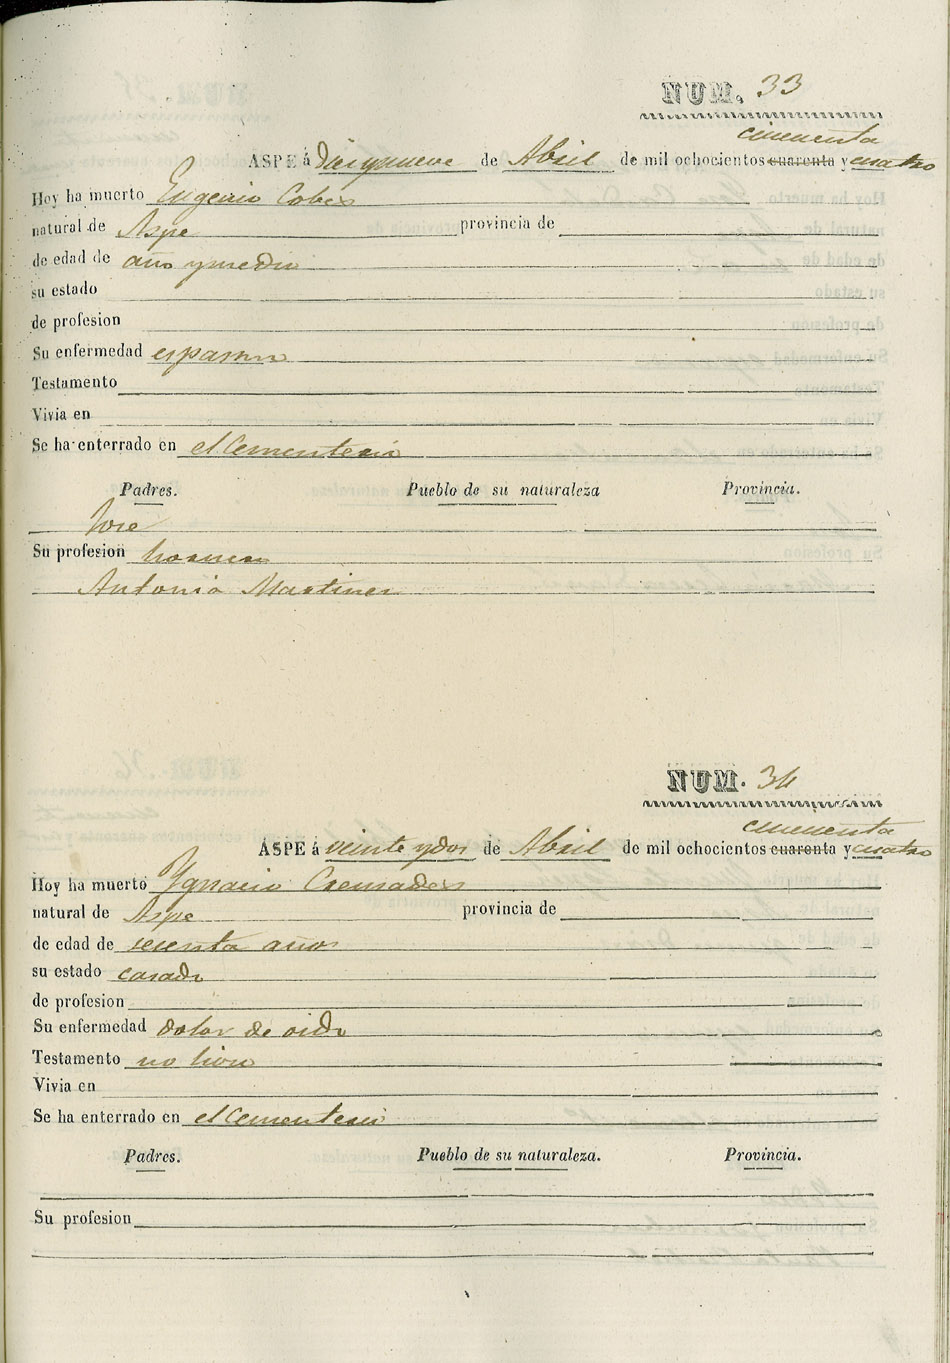 NUM. 33
cincuenta
ASPE á diez y nueve de Abril de mil ochocientos cuarenta y cuatro
Hoy ha muerto Eugenio Cobes
natural de Aspe provincia de
de edad de año y medio
su estado
de profesion
Su enfermedad espasmo
Testamento
Vivia en
Se ha enterrado en el Cementerio
Padres. Pueblo de su naturaleza Provincia.
Jose
Su profesion
Antonia Martines
NUM. 34
cincuenta
ASPE á veinte y dos de Abril de mil ochocientos cuarenta y cuatro
Hoy ha muerto Ygnacio Cremades
natural de Aspe provincia de
de edad de sesenta años
su estado casado
de profesion
Su enfermedad dolor de oido
Testamento no hizo
Vivia en
Se ha enterrado en el Cementerio
Padres. Pueblo de su naturaleza. Provincia.
Su profesion